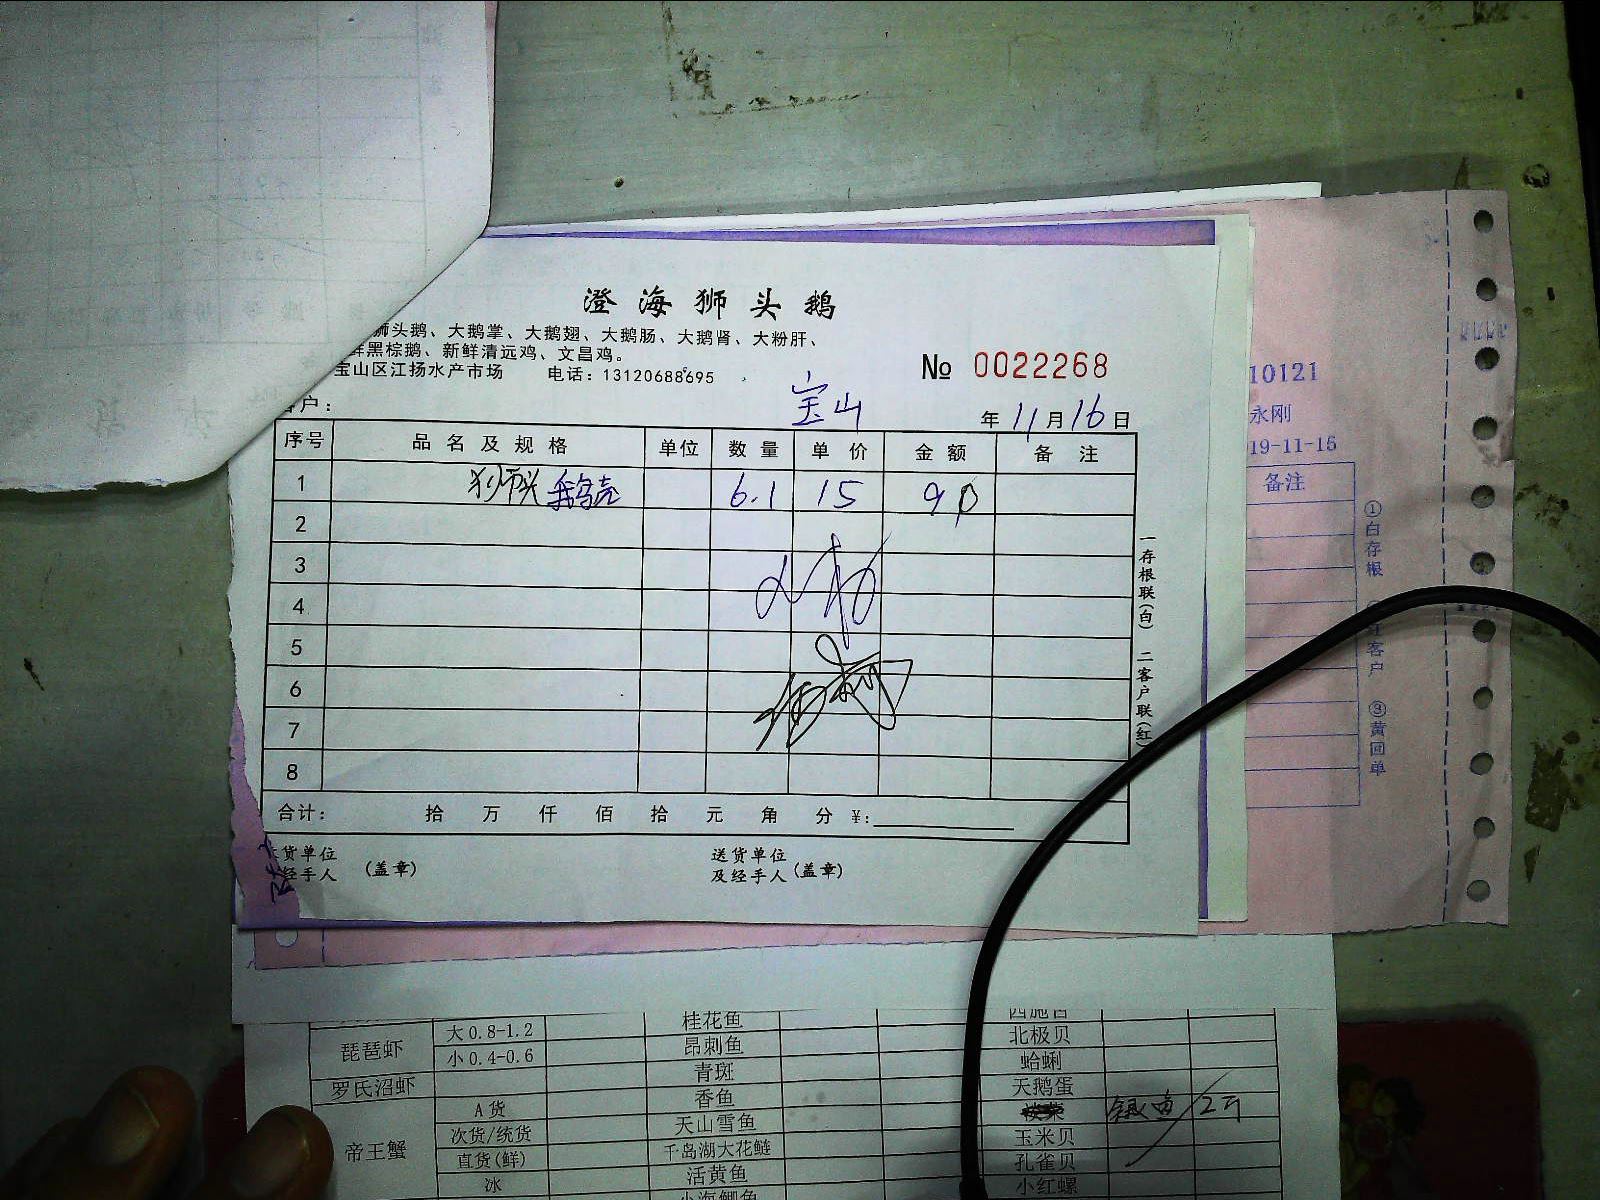 澄海狮头鹅
狮头鹅、大鹅掌、大鹅翅、大鹅肠、大鹅肾、大粉肝、
鲜黑棕鹅、新鲜清远鸡、文昌鸡。
宝山区江扬水产市场 电话：13120688695
№ 0022268
客户： 宝山 年 11 月 16 日
序号 品名及规格 单位 数量 单价 金额 备注
1 狮头鹅壳 6.1 15 90
2
3
4
5
6
7
8
合计： 拾 万 仟 佰 拾 元 角 分 ¥：
货单位 送货单位
经手人 (盖章) 及经手人 (盖章)
一存根联(白) 二客户联(红)
10121
永刚
19-11-15
备注
①白存根 客户 ③黄回单
琵琶虾 大0.8-1.2 桂花鱼
小0.4-0.6 昂刺鱼 北极贝
罗氏沼虾 青斑 蛤蜊
帝王蟹 A货 香鱼 天鹅蛋
次货/统货 天山雪鱼 银鱼/2斤
直货(鲜) 千岛湖大花鲢 玉米贝
冰 活黄鱼 孔雀贝
小海鲫鱼 小红螺